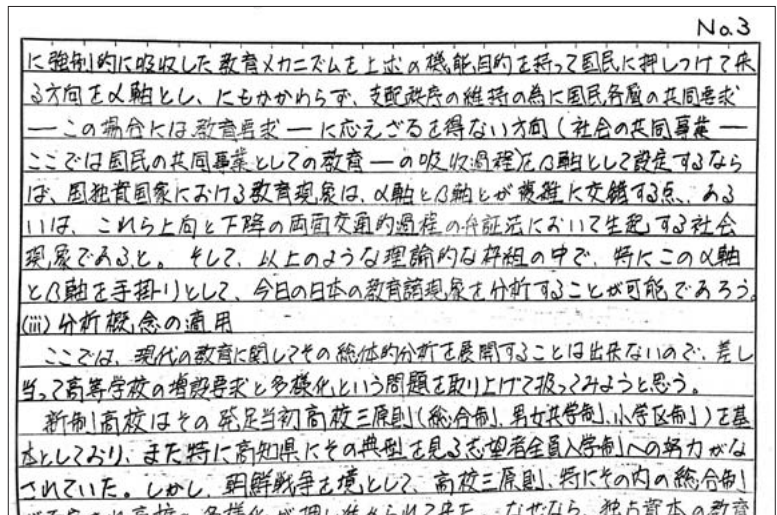 No.3
に強制的に吸収した教育メカニズムを上述の機能目的を持って国民に押しつけて来
る方向をα軸とし、にもかかわらず、支配秩序の維持の為に国民各層の共同要求
―この場合には教育要求―に応えざるを得ない方向(社会の共同事業―
ここでは国民の共同事業としての教育―の吸収過程)をβ軸として設定するなら
ば、国独資国家における教育現象は、α軸とβ軸とが複雑に交錯する点、ある
いは、これら上向と下降の両面交通的過程の弁証法において生起する社会
現象であると。そして、以上のような理論的な枠組の中で、特にこのα軸
とβ軸を手掛りとして、今日の日本の教育諸現象を分析することが可能であろう。
(iii)分析概念の適用
ここでは、現代の教育に関してその総体的分析を展開することは出来ないので、差し
当って高等学校の増設要求と多様化という問題を取り上げて扱ってみようと思う。
新制高校はその発足当初高校三原則(総合制、男女共学制、小学区制)を基
本としており、また特に高知県にその典型を見る志望者全員入学制への努力がな
されていた。しかし、朝鮮戦争を境として、高校三原則、特にその内の総合制
高校の多様化が押し進められて来た。なぜなら、独占資本の教育